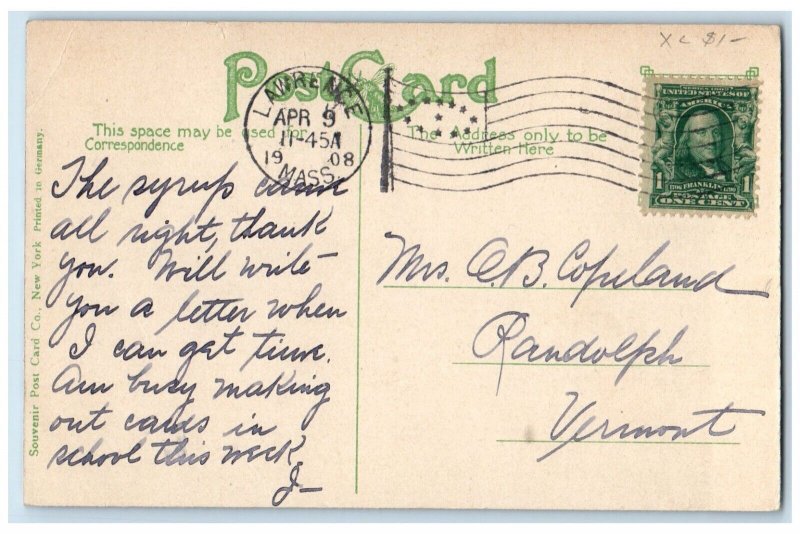 XC $1-
Post Card
LAWRENCE
APR 9
11-45A
19 08
MASS.
This space may be used for
Correspondence
The Address only to be
Written Here
SERIES 1902
UNITED STATES OF
AMERICA
1 FRANKLIN 1
POSTAGE
ONE CENT
Souvenir Post Card Co., New York Printed in Germany.
The syrup came
all right, thank
you. Will write
you a letter when
I can get time.
Am busy making
out cards in
school this week.
J—
Mrs. C.B. Copeland
Randolph
Vermont